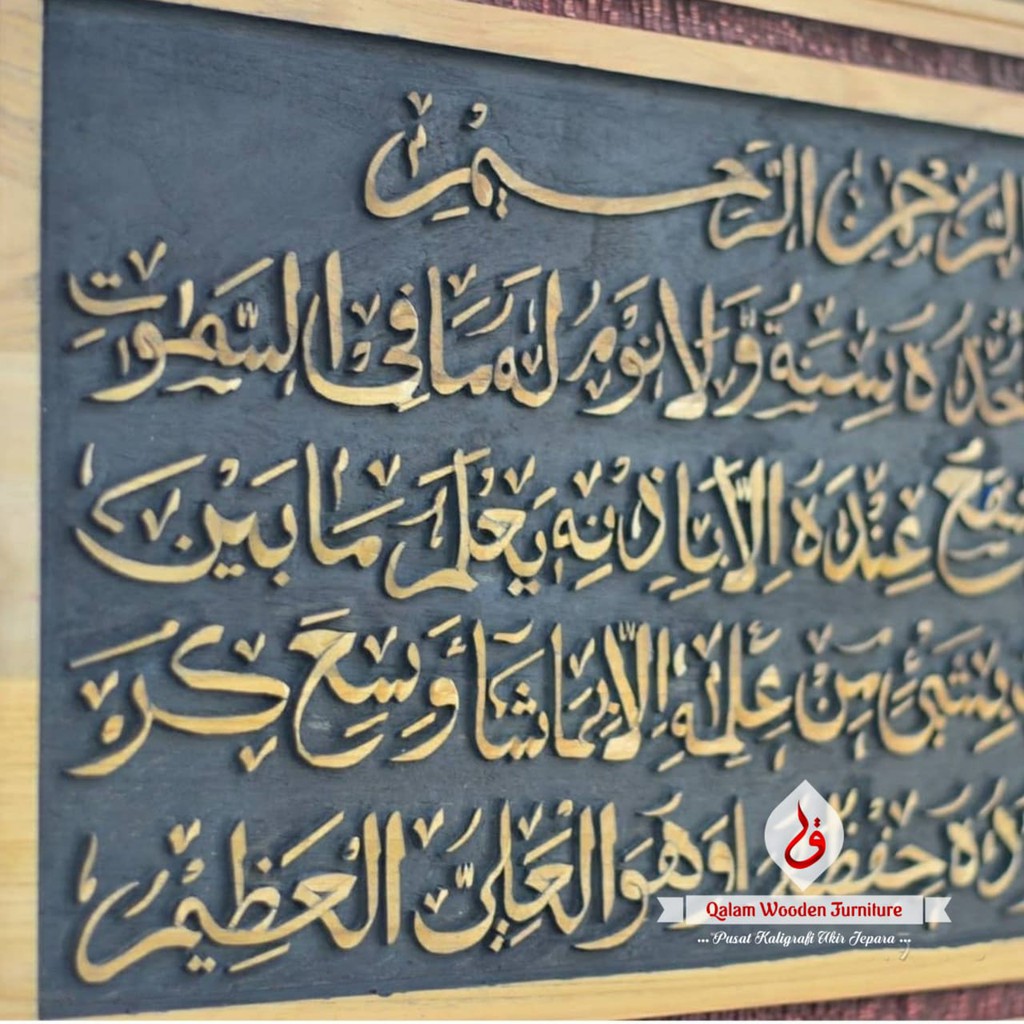 الرَّحْمٰنِ الرَّحِيْمِ
سِنَةٌ وَّلَا نَوْمٌ لَهُ مَا فِى السَّمٰوٰتِ
عِنْدَهُ اِلَّا بِاِذْنِهِ يَعْلَمُ مَا بَيْنَ
بِشَيْءٍ مِنْ عِلْمِهِ اِلَّا بِمَا شَاءَ وَسِعَ كُرْ
حِفْظُهُمَا وَهُوَ الْعَلِيُّ الْعَظِيْمُ
Qalam Wooden Furniture
... Pusat Kaligrafi Ukir Jepara ...